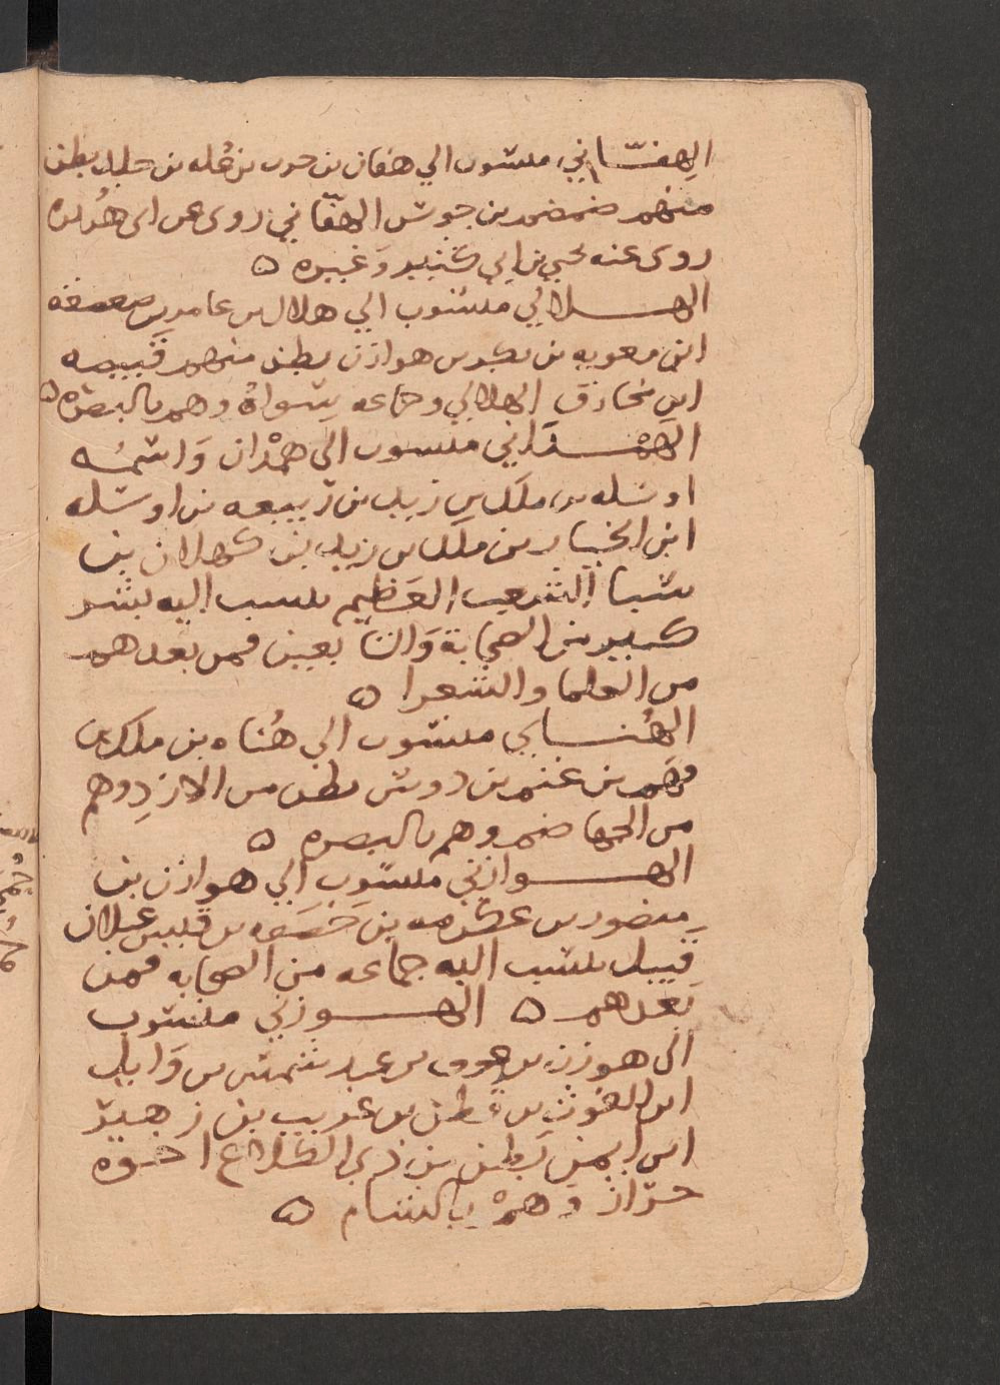 الهِفّاني منسوب الي هفان بن حرب بن عُله بن جلد بطن
منهم ضمضم بن جوش الهفّاني روى عن ابى هُريره
روى عنه يحيي بن ابي كثير وَغيره ٥
الهلالي منسوب الي هلال بن عامر بن صعصعه
ابن معويه بن بكر بن هوازن بطن منهم قَبيصه
ابن مخارق الهلالي وجماعه سِواهُ وهم بالبصره ٥
الهَمْدَاني منسوب الى همْدان وَاسمُه
اوسله بن ملك بن زيد بن ربيعه بن اوسله
ابن الخيار بن ملك بن زيد بن كهلان بن
سبا الشعب العَظيم ينسب اليه بشر
كبير من الصحابة وَالتابعين فمن بعدهم
من العلما والشعرا ٥
الهُنايي منسوب الي هُناه بن ملك بن
فهم بن غنم بن دوس بطن من الازدِ وهم
من الجهاضم وهم بالبصره ٥
الهوازني منسوب الي هوازن بن
منصور بن عكرمه بن خَصَفه بن قيس عيلان
قبيل ينسب اليه جماعه من الصحابه فمن
بعدهم ٥ الهوزني منسوب
الى هوزن بن عوف بن عبد شمس بن وَايل
ابن الغوث بن قطن بن عريب بن زهير
ابن ايمن بَطن من ذي الكلاع اخوه
حرّاز وَهمْ بالشام ٥